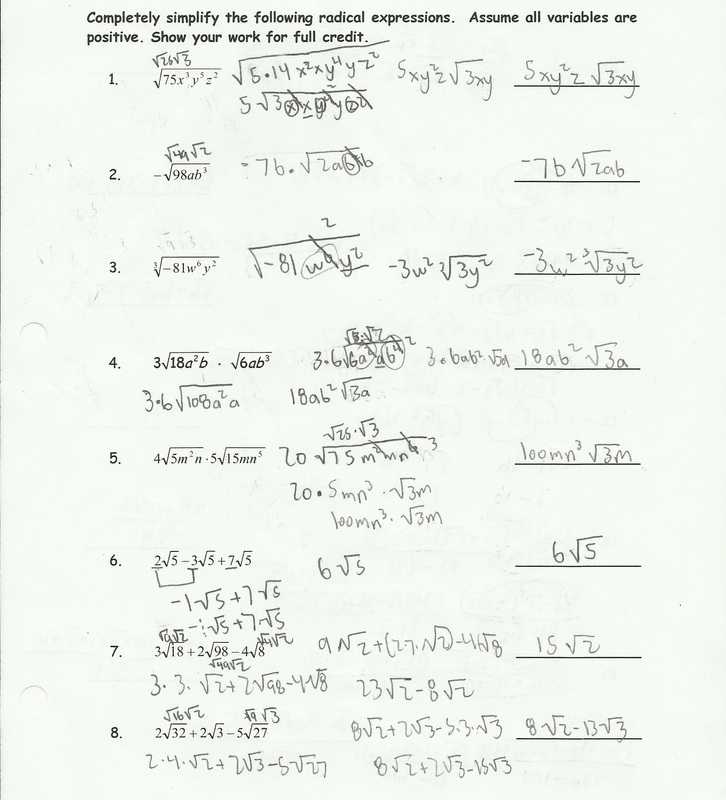 Completely simplify the following radical expressions. Assume all variables are
positive. Show your work for full credit.
√25√3
1. √75x³y⁵z² √5·14 x²xy⁴yz² 5xy²z√3xy 5xy²z √3xy
√49√2
2. -√98ab³ -7b·√2ab²b -7b√2ab
2
3. ∛-81w⁶y² -3w² ∛3y² -3w² ∛3y²
4. 3√18a²b · √6ab³ 18ab² √3a
3·6√108a²a 18ab²√3a
√25·√3
5. 4√5m²n·5√15mn⁵ 20 √75m²mn⁶ 3 100mn³ √3m
20·5mn³·√3m
100mn³·√3m
6. 2√5-3√5+7√5 6√5 6√5
-1√5+7√5
-1√5+7√5
√9√2 √4√2
7. 3√18+2√98-4√8 9√2+(27·√2)-4√8 15√2
√49√2
3·3·√2+2√98-4√8 23√2-8√2
√16√2 √9√3
8. 2√32+2√3-5√27 8√2+2√3-5·3·√3 8√2-13√3
2·4·√2+2√3-5√27 8√2+2√3-15√3